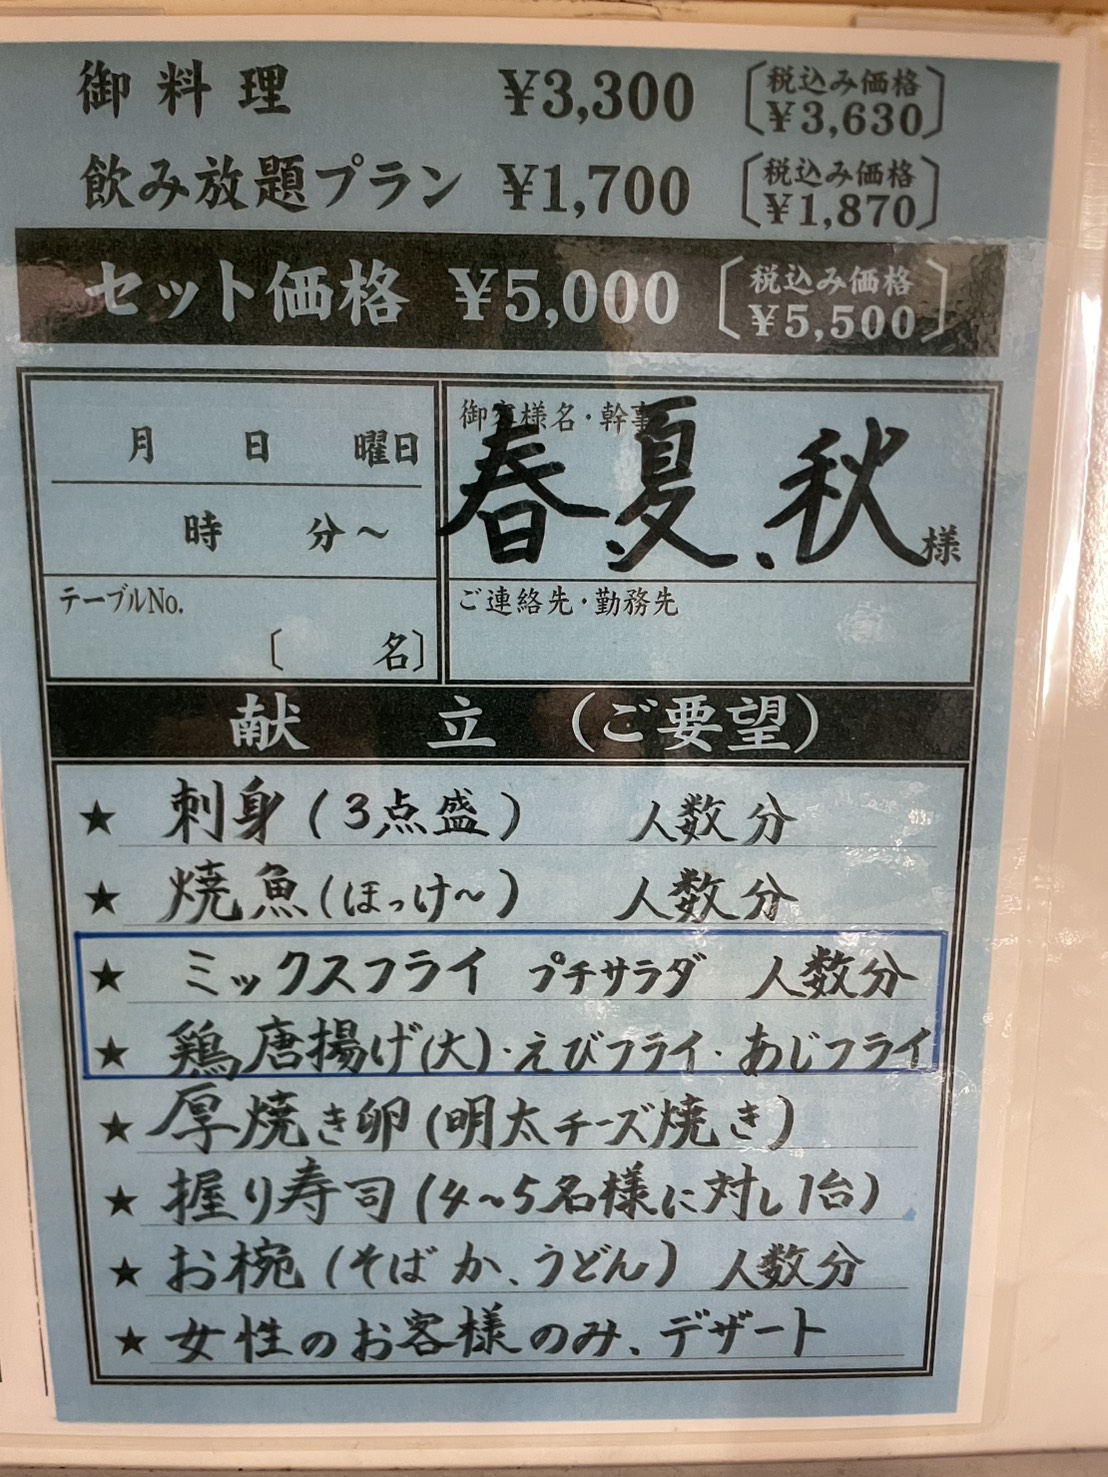 御料理 ¥3,300 〔税込み価格 ¥3,630〕
飲み放題プラン ¥1,700 〔税込み価格 ¥1,870〕
セット価格 ¥5,000 〔税込み価格 ¥5,500〕
月 日 曜日
時 分～
テーブルNo.
〔 名〕
御客様名・幹事
春、夏、秋 様
ご連絡先・勤務先
献 立 (ご要望)
★ 刺身(3点盛) 人数分
★ 焼魚(ほっけ～) 人数分
★ ミックスフライ プチサラダ 人数分
★ 鶏唐揚げ(大)・えびフライ・あじフライ
★ 厚焼き卵(明太チーズ焼き)
★ 握り寿司(4～5名様に対し1台)
★ お椀(そばか、うどん) 人数分
★ 女性のお客様のみ、デザート